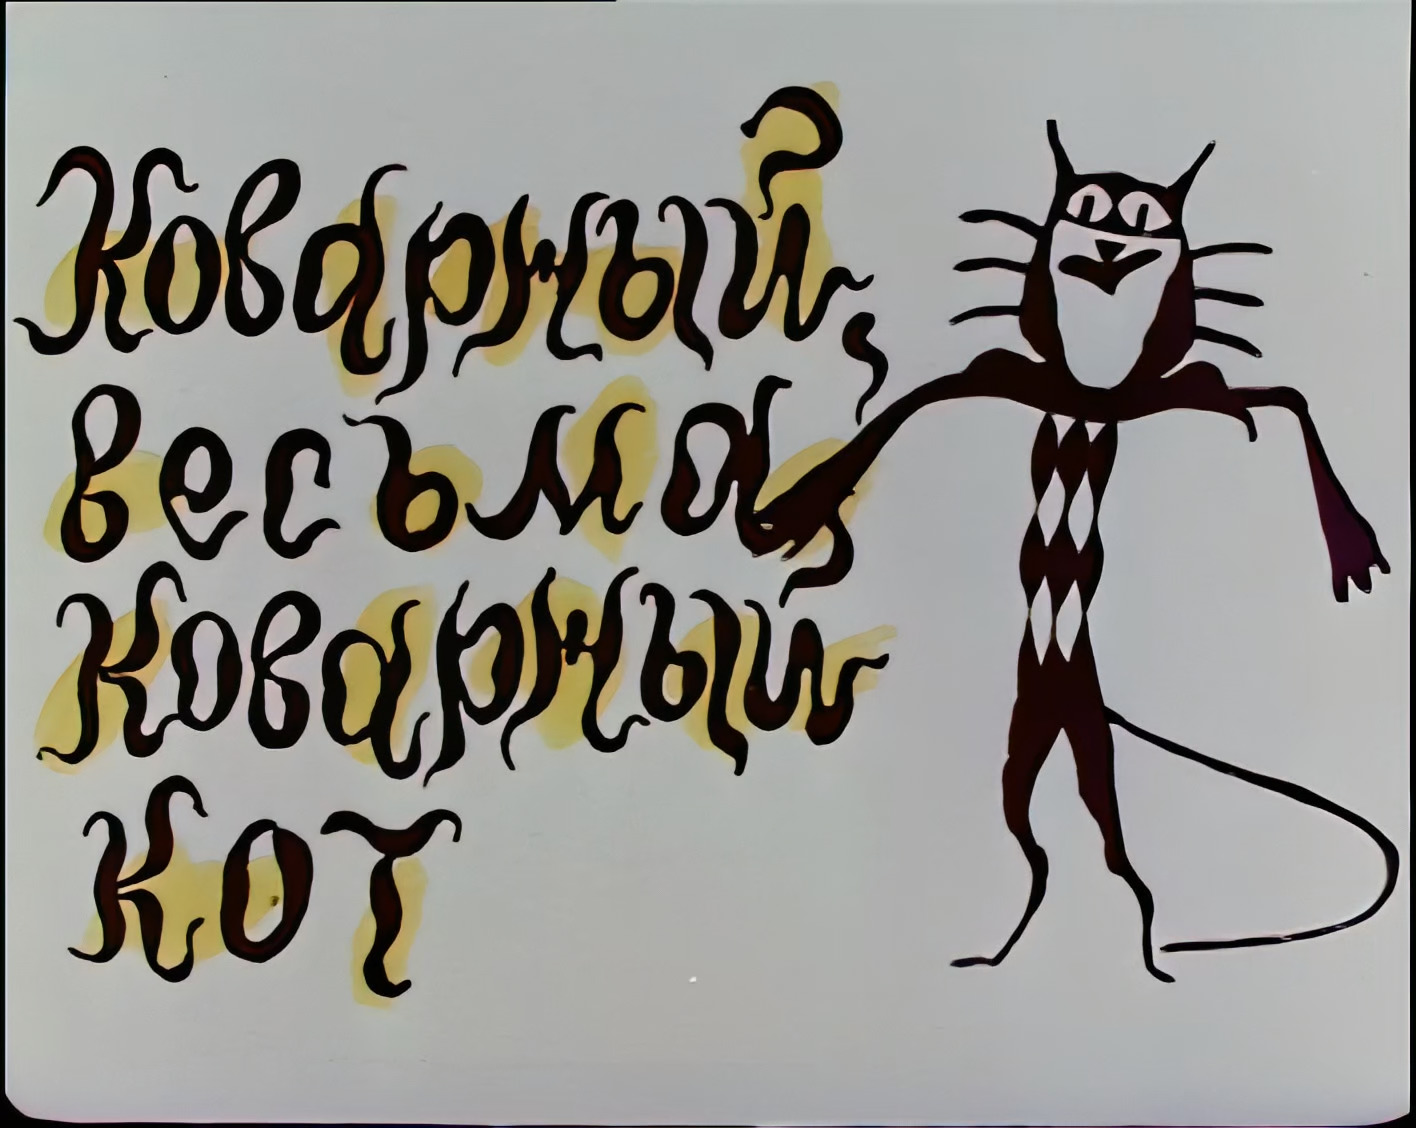 Коварный,
весьма
Коварный
кот